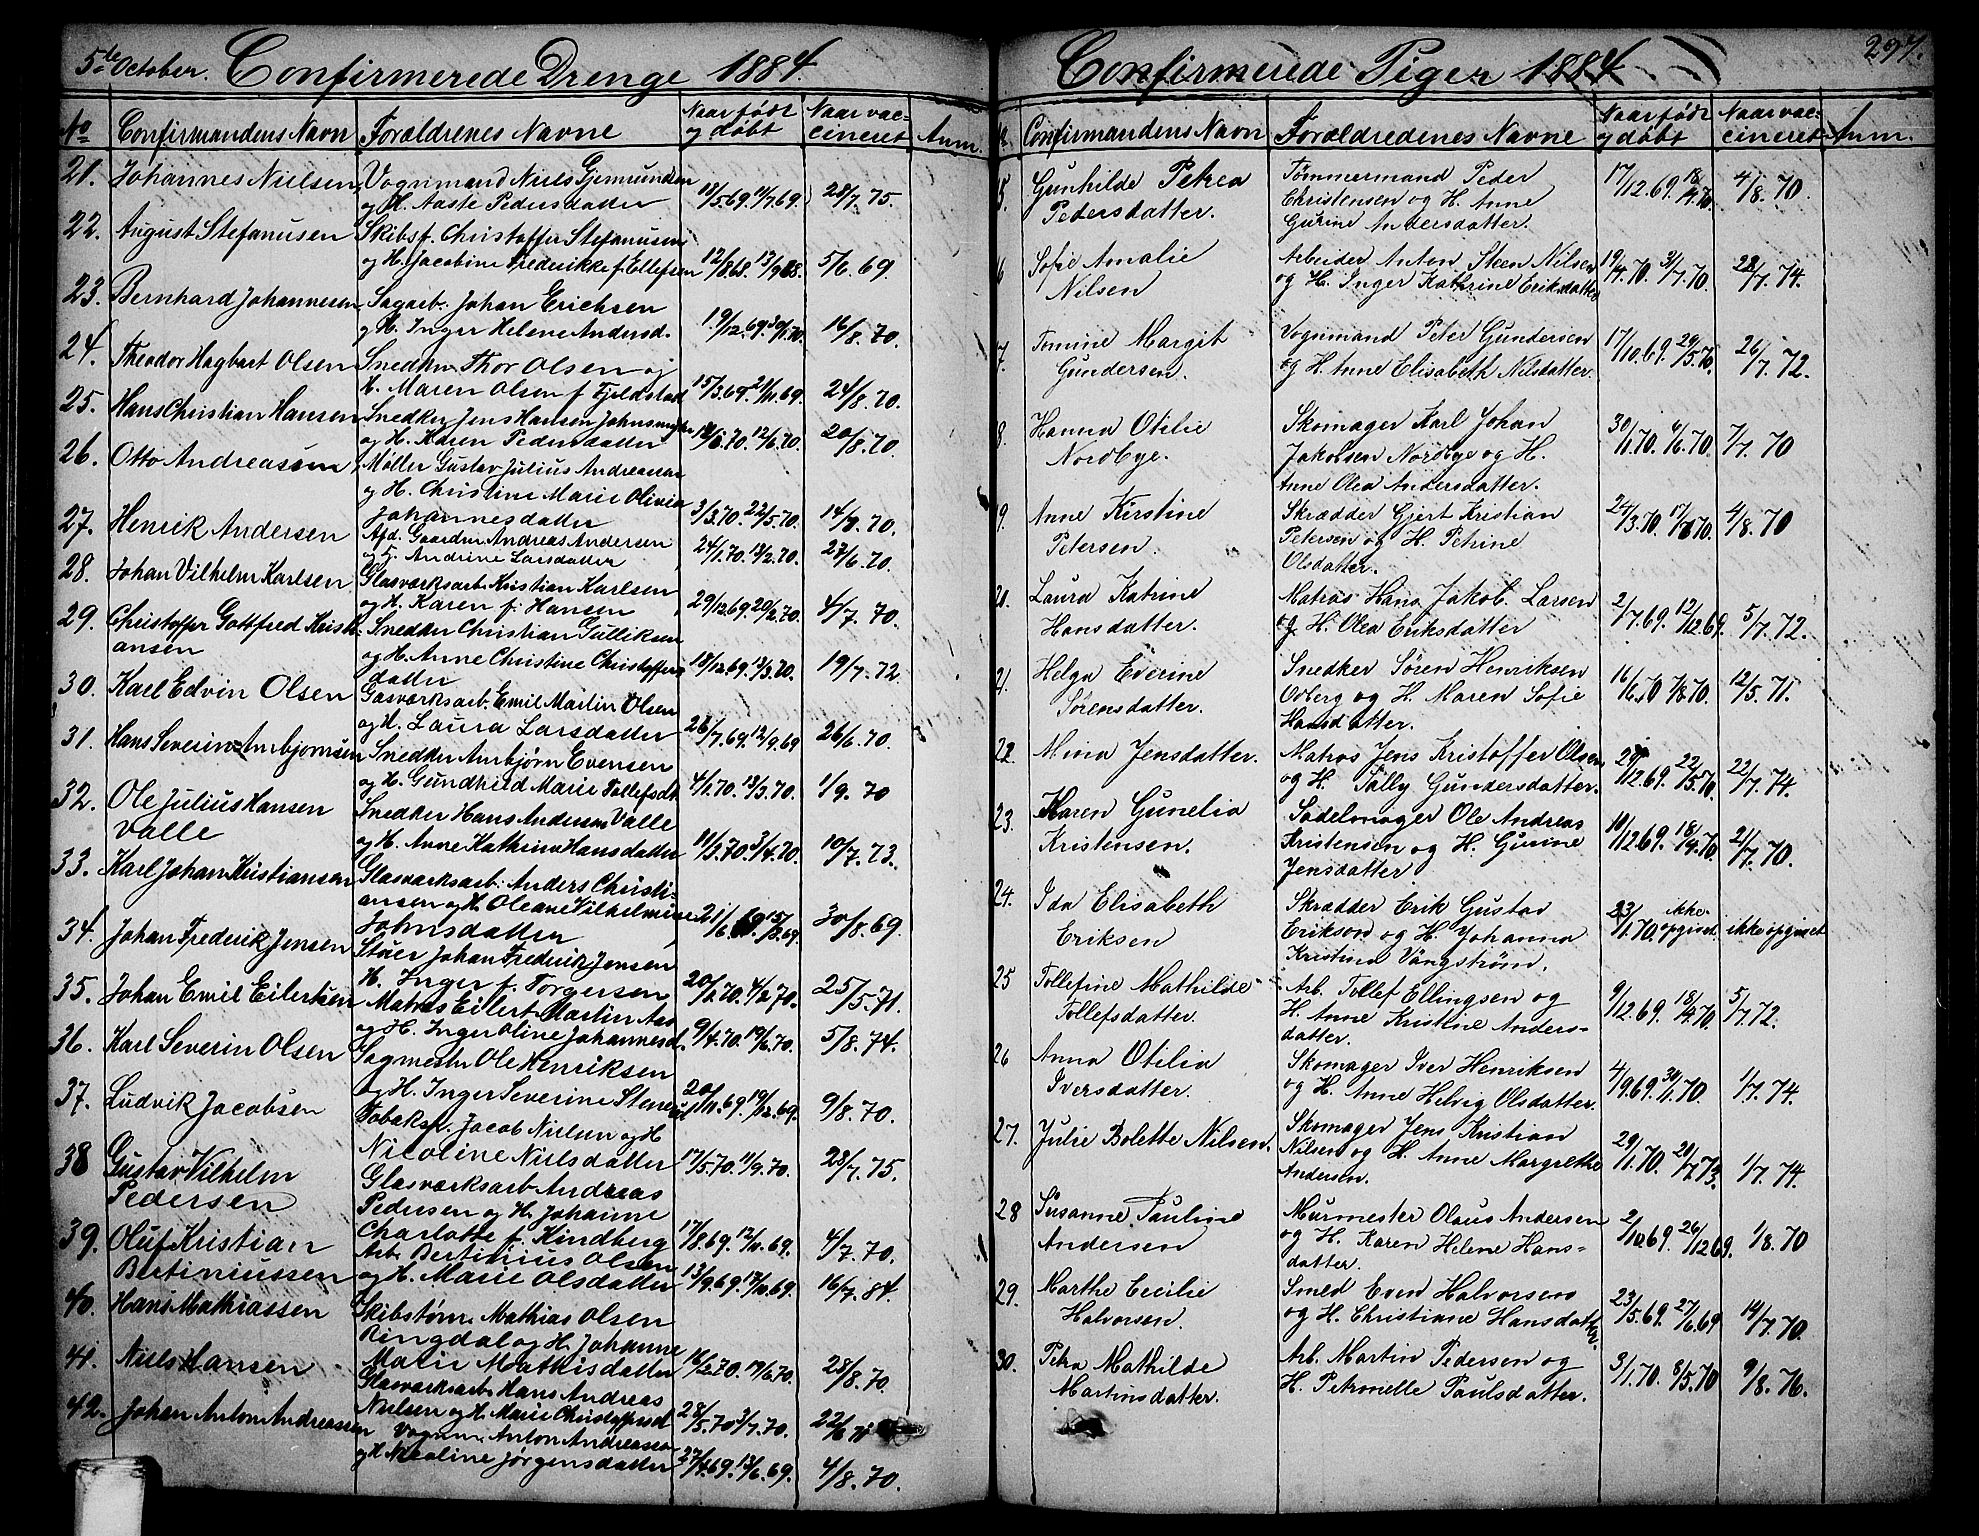 5te October. Confirmerede Drenge 1884.
No Confirmandens Navn Forældrenes Navne Naar født og døbt Naar vaccineret Anm.
21. Johannes Nielsen Vognmand Niels Gjermundsen
og H. Aaste Pedersdatter 18/5.69. 11/7.69. 28/7. 75.
22. August Stefanusen Skibsf. Christoffer Stefanusen
og H. Jacobine Frederikke f. Ellefsen 12/8.68. 13/9.68. 5/6. 69.
23. Bernhard Johannesen Sagarb. Johan Erichsen
og H. Inger Helene Andersd. 19/12.69. 30/1.70. 16/8. 70.
24. Theodor Hagbart Olsen Snedker Thor Olsen og
H. Maren Olsen f. Fjeldstad 15/3.69. 21/11.69. 24/8. 70.
25. Hans Christian Hansen Snedker Jens Hansen
og H. Karen Pedersdatter 12/6.70. 20/8. 70.
26. Otto Andreassen Møller Gustav Julius Andreassen
og H. Christine Marie Olivia
Johannesdatter 3/3.70. 22/5.70. 14/9. 70.
27. Henrik Andersen Afd. Gaardm. Andreas Andersen
og H. Andrine Larsdatter 24/1.70. 13/2.70. 23/6. 70.
28. Johan Vilhelm Karlsen Glasværksarb. Kristian Karlsen
og H. Karen f. Hansen 29/12.69. 20/2.70. 4/7. 70.
29. Christoffer Gottfred Kristi-
ansen Snedker Christian Gulliksen
og H. Anne Christine Christoffers-
datter 18/12.69. 13/3.70. 19/7. 72
30. Karl Edvin Olsen Gasværksarb. Emil Martin Olsen
og H. Laura Larsdatter 26/7.69. 12/9.69 26/6. 70.
31. Hans Severin Arnbjørnsen Snedker Arnbjørn Evensen
og H. Gundhild Marie Tollefsdtr 4/1.70. 13/3.70. 1/9. 70
32. Ole Julius Hansen
Valle Snedker Hans Andersen Valle
og H. Anne Kathrine Hansdatter 11/3.70. 3/4.70. 10/7. 73.
33. Karl Johan Kristiansen Glasværksarb. Anders Christi-
ansen og H. Oleane Vilhelmine
Johnsdatter 21/6.69. 15/8.69. 30/8. 69.
34. Johan Frederik Jensen Stuer Johan Frederik Jensen
H. Inger f. Torgersen 20/1.70. 4/2.70. 25/5. 71.
35. Johan Emil Eilertsen Matros Eilert Martin Aas
og H. Inger Oline Johannesd. 9/4.70. 19/6.70. 5/8. 74.
36. Karl Severin Olsen Sagmester Ole Henriksen
og H. Inger Severine Stenersd. 20/11.69. 19/12.69. 9/8. 70.
37. Ludvik Jacobsen Tobaksp. Jacob Nielsen og H
Nicoline Nielsdatter 17/5.70. 11/9.70. 23/7. 75.
38 Gustav Vilhelm
Pedersen Glasværksarb. Andreas
Pedersen og H. Johanne
Charlotte f. Kindberg 17/8.69. 12/11.69. 4/7. 70.
39. Oluf Kristian
Bertiniussen Arb. Bertinius Olsen
og H. Marie Olsdatter 13/9.69. 17/10.69. 16/7. 84.
40. Hans Mathiassen Skibstøm. Mathias Olsen
Ringdal og H. Johanne
Marie Mathisdatter 16/2.70. 19/6.70. 28/8. 70.
41. Niels Hansen Glasværksarb. Hans Andreas
Nielsen og H. Marie Christoffersd. 28/5.70 3/7.70. 22/6
42. Johan Anton Andreassen Vognm. Anton Andreassen
og H Nicoline Jørgensdatter 27/4.69. 13/6.69. 4/8. 70.
Confirmerede Piger 1884 297.
Confirmandens Navn Foraldredenes Navne Naar født og døbt Naar vaccineret Anm.
15. Gunhilde Petrea
Pedersdatter. Tømmermand Peder
Christensen og H. Anne
Gurine Andersdatter. 17/12.69. 18/4.70. 4/8. 70.
16 Sofie Amalie
Nilsen Arbeider Anton Steen Nilsen
og H. Inger Kathrine Eriksdatter 19/4.70. 31/7.70. 22/7. 74.
17. Tomine Margit
Gundersen. Vognmand Peter Gundersen
og H. Anne Elisabeth Nilsdatter. 17/10.69. 29/5.70. 26/7. 72.
18. Hanna Otilie
Nordbye. Skomager Karl Johan
Jakobsen Nordbye og H.
Anne Olea Andersdatter. 30/1.70. 6/6.70. 7/7. 70
19. Anne Kirstine
Petersen. Skrædder Gjert Kristian
Petersen og H. Petrine
Olsdatter. 24/3.70. 4/8. 70
20. Laura Katrine
Hansdatter. Matros Hans Jakob. Larsen
og H. Olea Eriksdatter 2/7.69. 12/12.69. 5/7. 72.
21. Helga Everine
Sørensdatter. Snedker Søren Henriksen
Orberg og H. Maren Sofie
Hansdatter. 16/6.70 7/8.70. 12/5. 71.
22. Mina Jensdatter. Matros Jens Kristoffer Olsen
og H. Tally Gundersdatter. 29/12.69. 22/5.70. 22/7. 74.
23. Karen Gunelia
Kristensen. Sadelmager Ole Andreas
Kristensen og H. Gurine
Jensdatter 10/12.69. 18/4.70. 21/7. 70.
24. Ida Elisabeth
Eriksen Skrædder Erik Gustav
Erikson og H. Johanna
Kristina Vängstrøm. 23/1.70. ikke opgivet. ikke opgivet
25 Tollefine Mathilde
Tollefsdatter. Arb. Tollef Ellingsen og
H. Anne Kristine Anders-
datter. 9/12.69. 18/4.70. 5/7. 72.
26 Anna Otilia
Iversdatter. Skomager Iver Henriksen
og H. Anne Helvig Olsdatter. 4/9.69. 30/1.70. 1/7. 74.
27. Julie Bolette Nilsen. Skomager Jens Kristian
Nilsen og H. Anne Margrethe
Andersen. 29/1.70. 20/7.73. 1/7. 74.
28 Susanne Pauline
Andersen Murmester Olaus Andersen
og H. Karen Helene Hans-
datter. 2/10.69. 26/12.69. 1/8. 70
29. Marthe Cecilie
Halvorsen. Smed Even Halvorsen
og H. Christiane Hansdatter. 23/5.69. 27/6.69 14/7. 70.
30. Petra Mathilde
Martinsdatter. Arb. Martin Pedersen og
H. Petronelle Paulsdatter. 3/1.70. 8/5.70 9/8. 76.